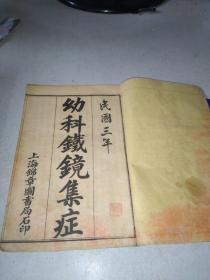 民國三年
幼科鐵鏡集症
上海錦章圖書局石印